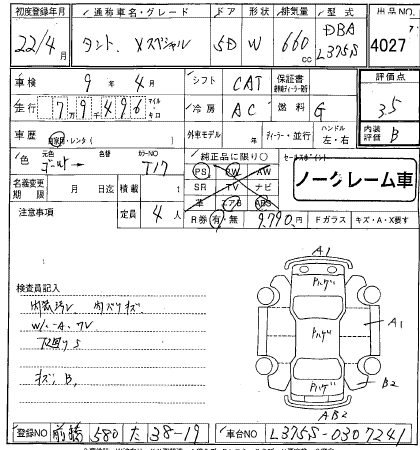 初度登録年月 通称車名・グレード ドア 形状 排気量 型式 出品NO
22/4月 タント Xスペシャル 5D W 660cc DBA L375S 4027
車検 9年 4月 シフト CAT 保証書 評価点
走行 79496 マイル キロ 冷房 AC 燃料 G 3.5
車歴 自家用・レンタ( 外車モデル 年 ディーラー・並行 ハンドル 左・右 内装評価 B
色 元色 ゴールド→ 色替 カラーNO T17 純正品に限り○ セールスポイント
PS PW AW
名義変更期限 月 日迄 積載 t SR TV ナビ ノークレーム車
注意事項 定員 4人 革 エアB ABS
R券 有・無 9,790円 Fガラス キズ・A・X要す
検査員記入
内装汚レ 内バリキズ
W/-A,フレ
下廻りS
キズ,B,
A1
ハゲ
ハゲ
A1
ハゲ
B2
AB2
登録NO 前橋 580 た 38-19 車台NO L375S-0307241